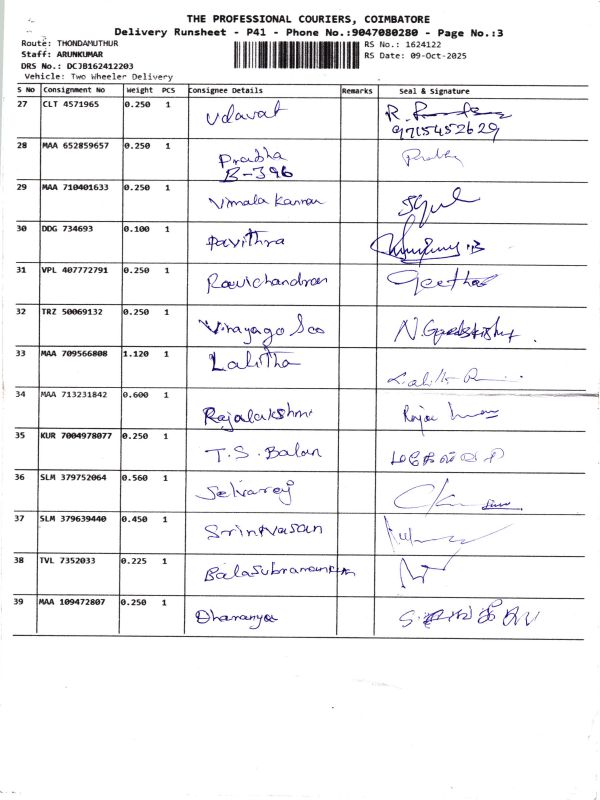 THE PROFESSIONAL COURIERS, COIMBATORE
Delivery Runsheet - P41 - Phone No.:9047080280 - Page No.:3
Route: THONDAMUTHUR
RS No.: 1624122
Staff: ARUNKUMAR
RS Date: 09-Oct-2025
DRS No.: DCJB162412203
Vehicle: Two Wheeler Delivery
S No Consignment No Weight PCS Consignee Details Remarks Seal & Signature
27 CLT 4571965 0.250 1 Udavat
9715452629
28 MAA 652859657 0.250 1 Prabha
B-396
29 MAA 710401633 0.250 1 Vimala Kannan
30 DDG 734693 0.100 1 Pavithra
31 VPL 407772791 0.250 1 Ravichandran Geetha
32 TRZ 50069132 0.250 1
33 MAA 709566808 1.120 1 Lalitha
34 MAA 713231842 0.600 1 Rajalakshmi
35 KUR 7004978077 0.250 1 T.S. Balan
36 SLM 379752064 0.560 1 Selvaraj
37 SLM 379639440 0.450 1 Srinivasan
38 TVL 7352033 0.225 1 Balasubramaniam
39 MAA 109472807 0.250 1 Dharanya